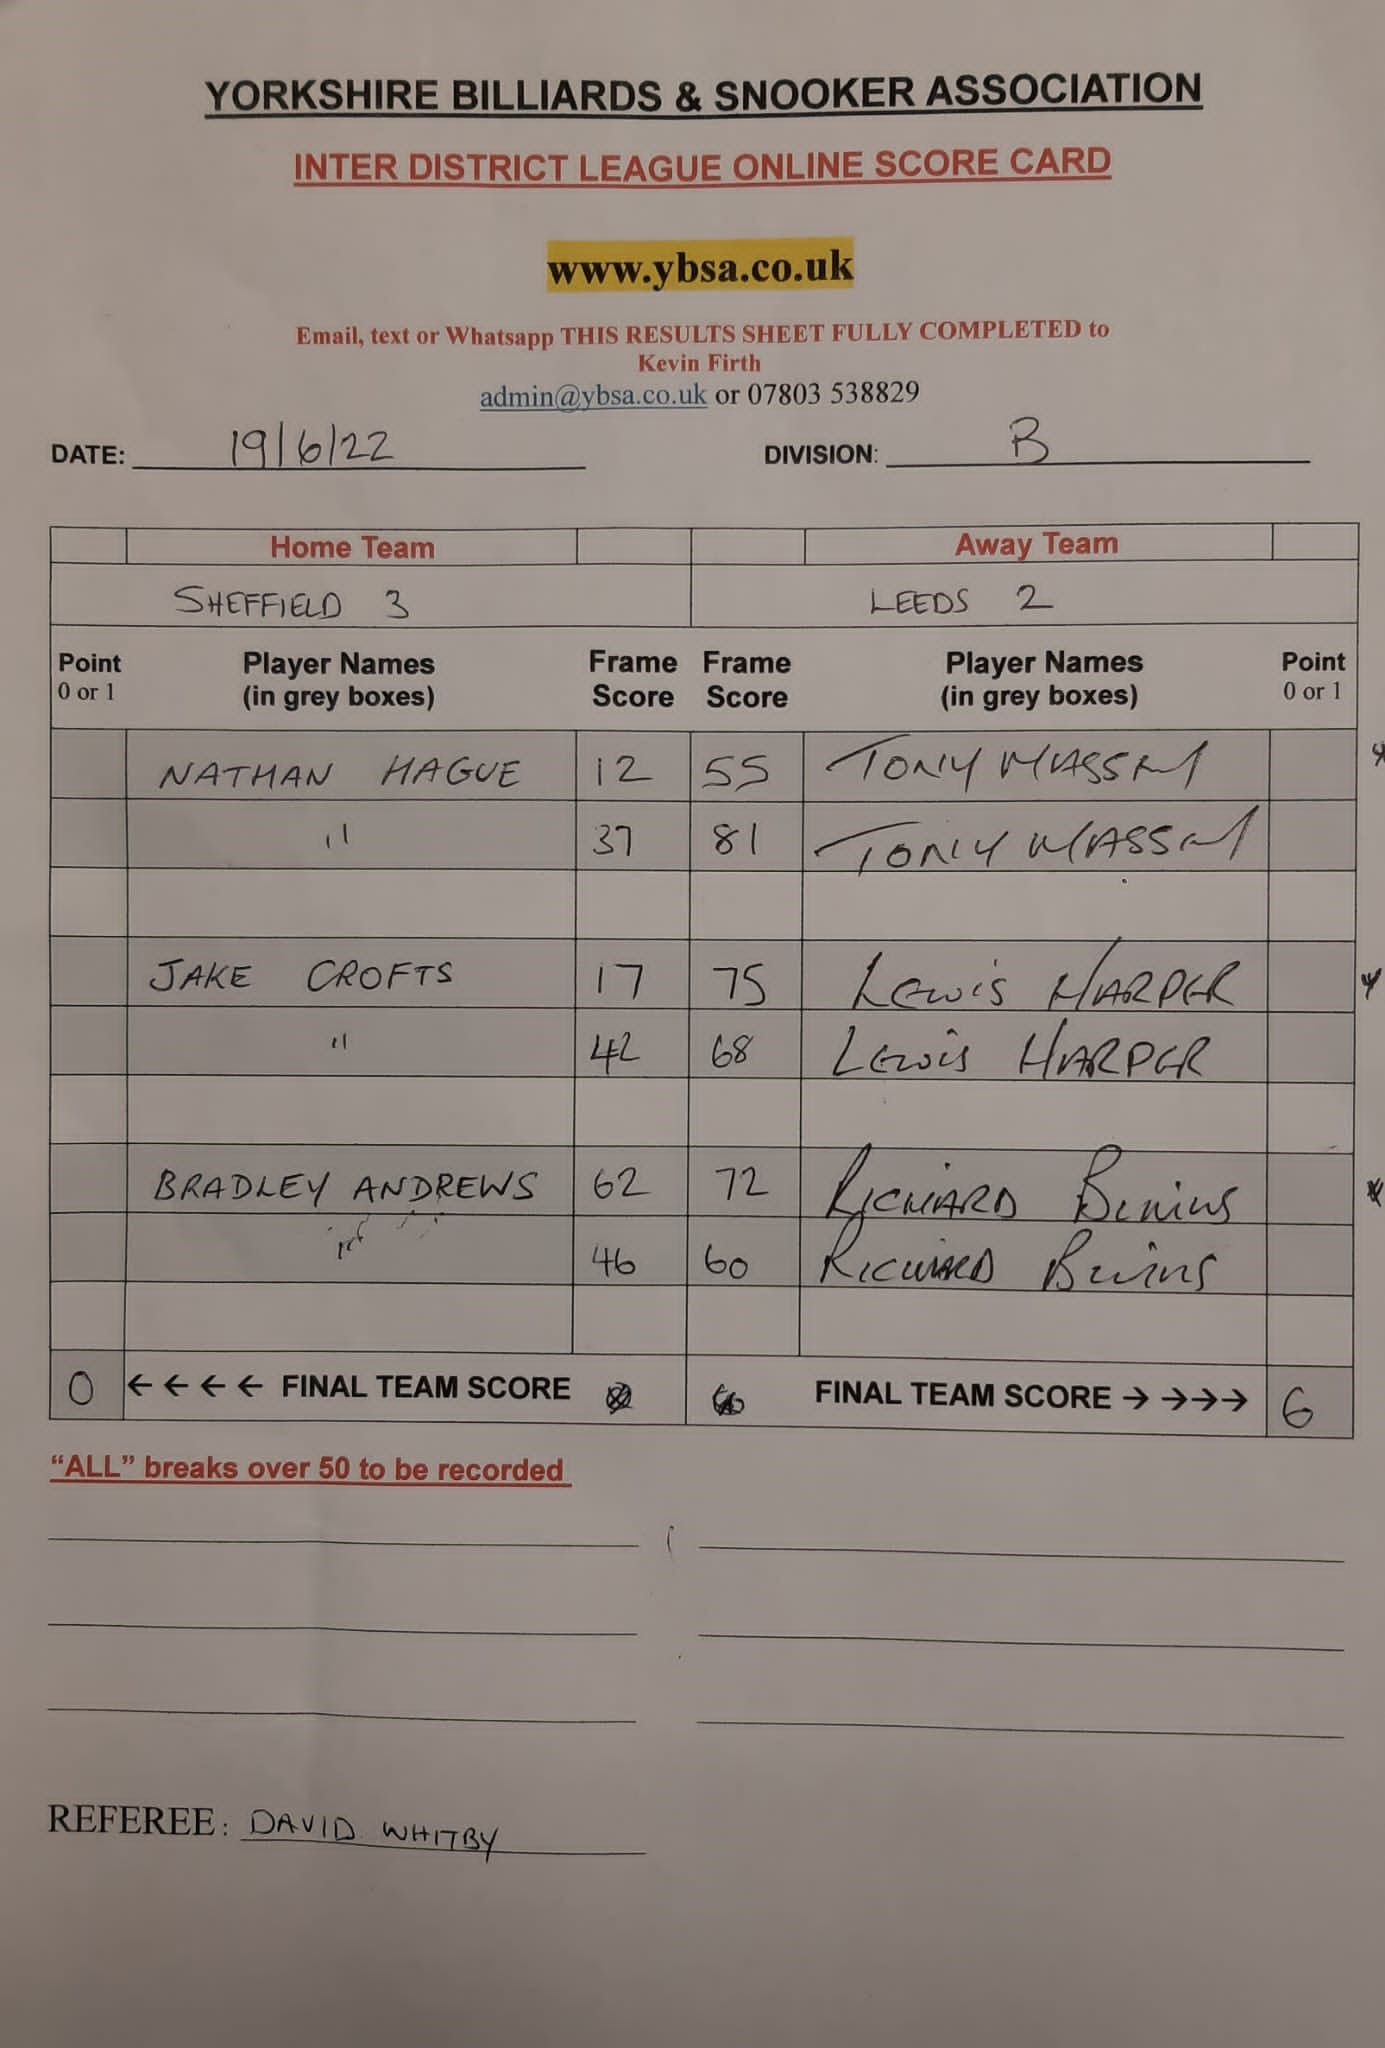 YORKSHIRE BILLIARDS & SNOOKER ASSOCIATION
INTER DISTRICT LEAGUE ONLINE SCORE CARD
www.ybsa.co.uk
Email, text or Whatsapp THIS RESULTS SHEET FULLY COMPLETED to
Kevin Firth
admin@ybsa.co.uk or 07803 538829
DATE: 19/6/22 DIVISION: B
Home Team Away Team
SHEFFIELD 3 LEEDS 2
Point Player Names Frame Frame Player Names Point
0 or 1 (in grey boxes) Score Score (in grey boxes) 0 or 1
NATHAN HAGUE 12 55 TONY MASSEY
" 37 81 TONY MASSEY
JAKE CROFTS 17 75 LEWIS HARPER
" 42 68 LEWIS HARPER
BRADLEY ANDREWS 62 72 RICHARD
46 60 RICHARD
0 ←←←← FINAL TEAM SCORE FINAL TEAM SCORE →→→→ 6
“ALL” breaks over 50 to be recorded
REFEREE: DAVID WHITBY